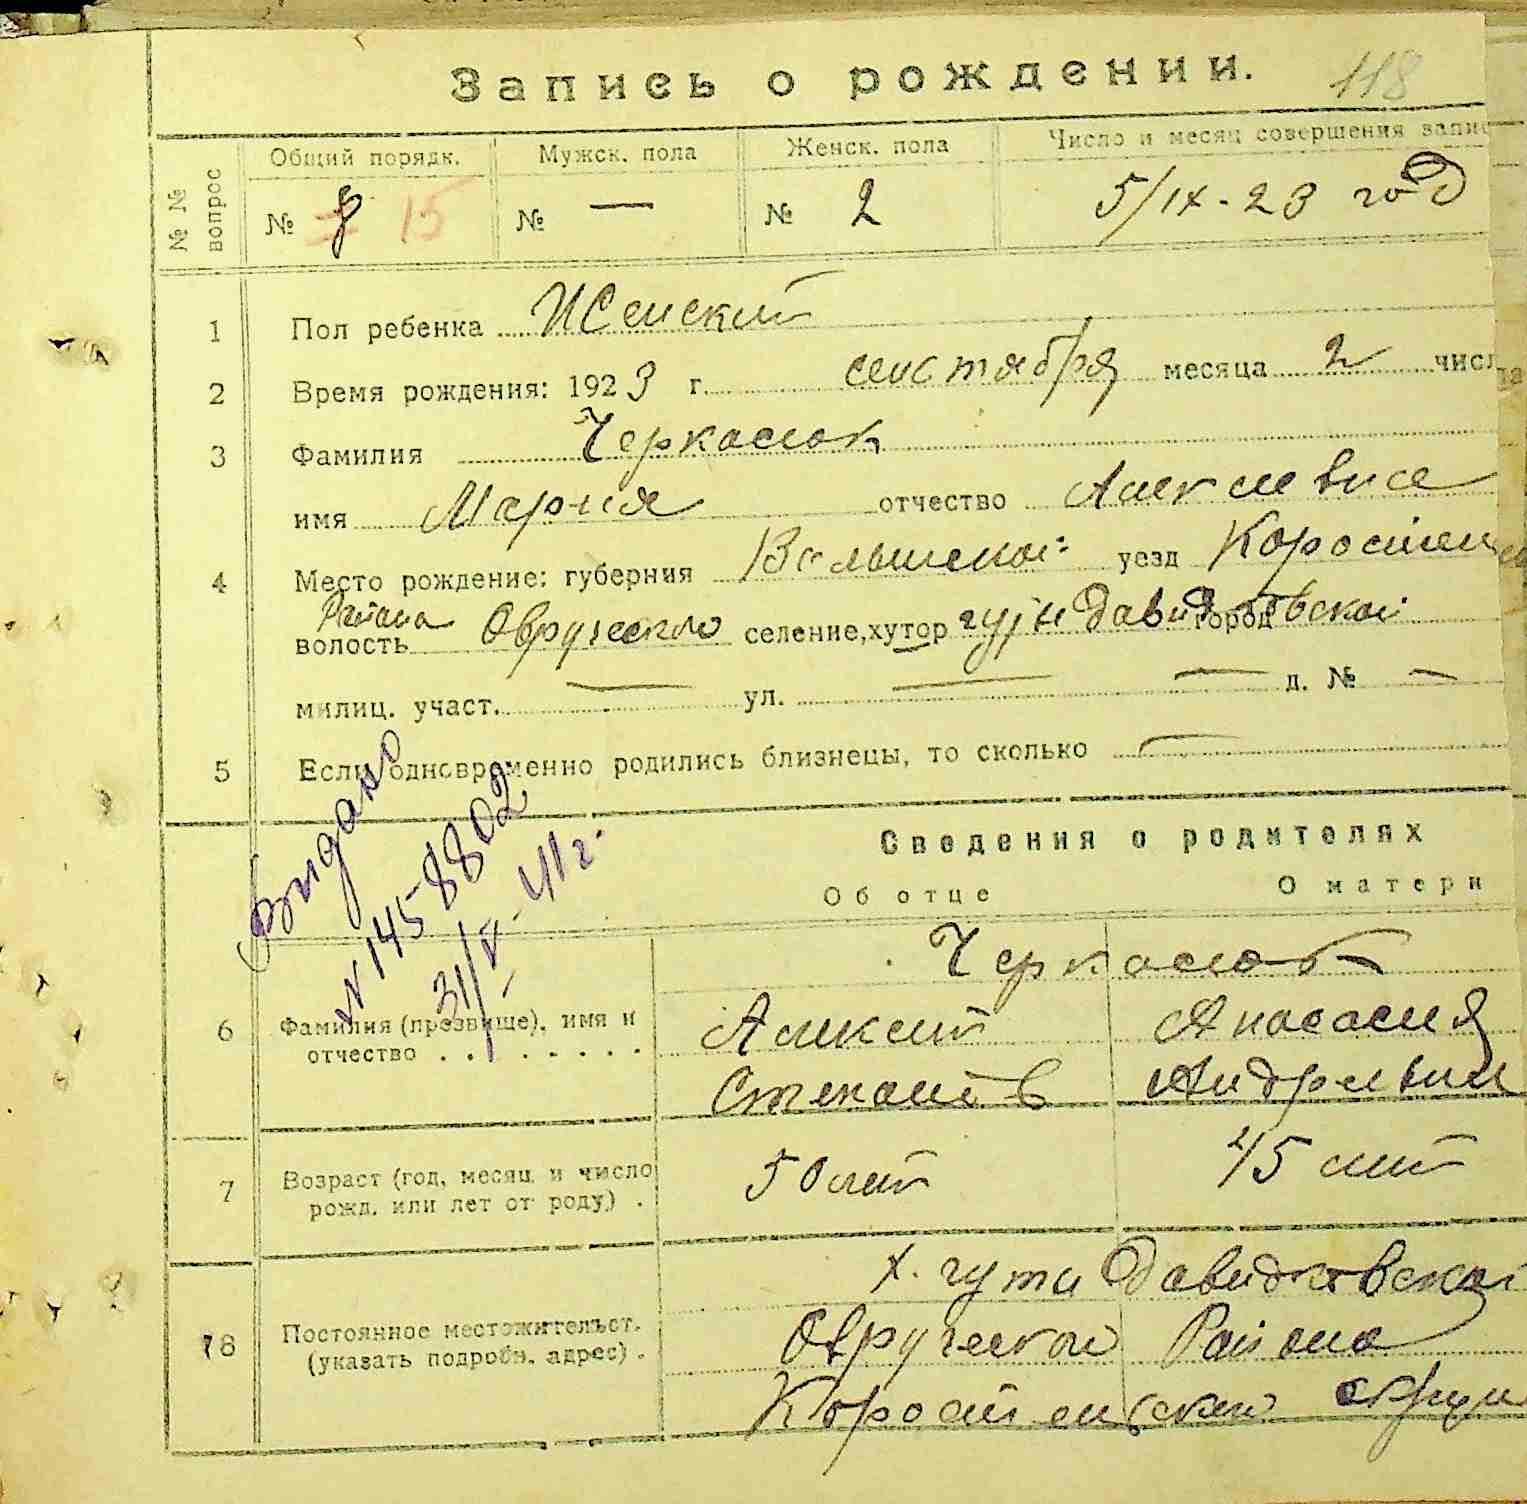 Запись о рождении. 118
№ № вопрос
Общий порядк. Мужск. пола Женск. пола Число и месяц совершения запис
№ 8 15 № — № 2 5/IX - 23 год
1 Пол ребенка Женский
2 Время рождения: 1923 г. сентября месяца 2 числ
3 Фамилия Черкасюк
имя Мария отчество Алексеевна
4 Место рождение: губерния Волынской уезд Коростен
Района
волость Овручского селение, хутор гута Давидковской город
милиц. участ. — ул. — — д. № —
5 Если одновременно родились близнецы, то сколько —
Видано
№ 145-8802
31/V - 41 г.
Сведения о родителях
Об отце О матери
Черкасюк
6 Фамилия (прозвище), имя и отчество
Алексей
Степанов
Анасасия
Андреевна
7 Возраст (год, месяц и число рожд. или лет от роду)
50 лет 45 лет
78 Постоянное местожительст. (указать подробн. адрес)
х. гута Давидковской
Овручского Района
Коростенской округи